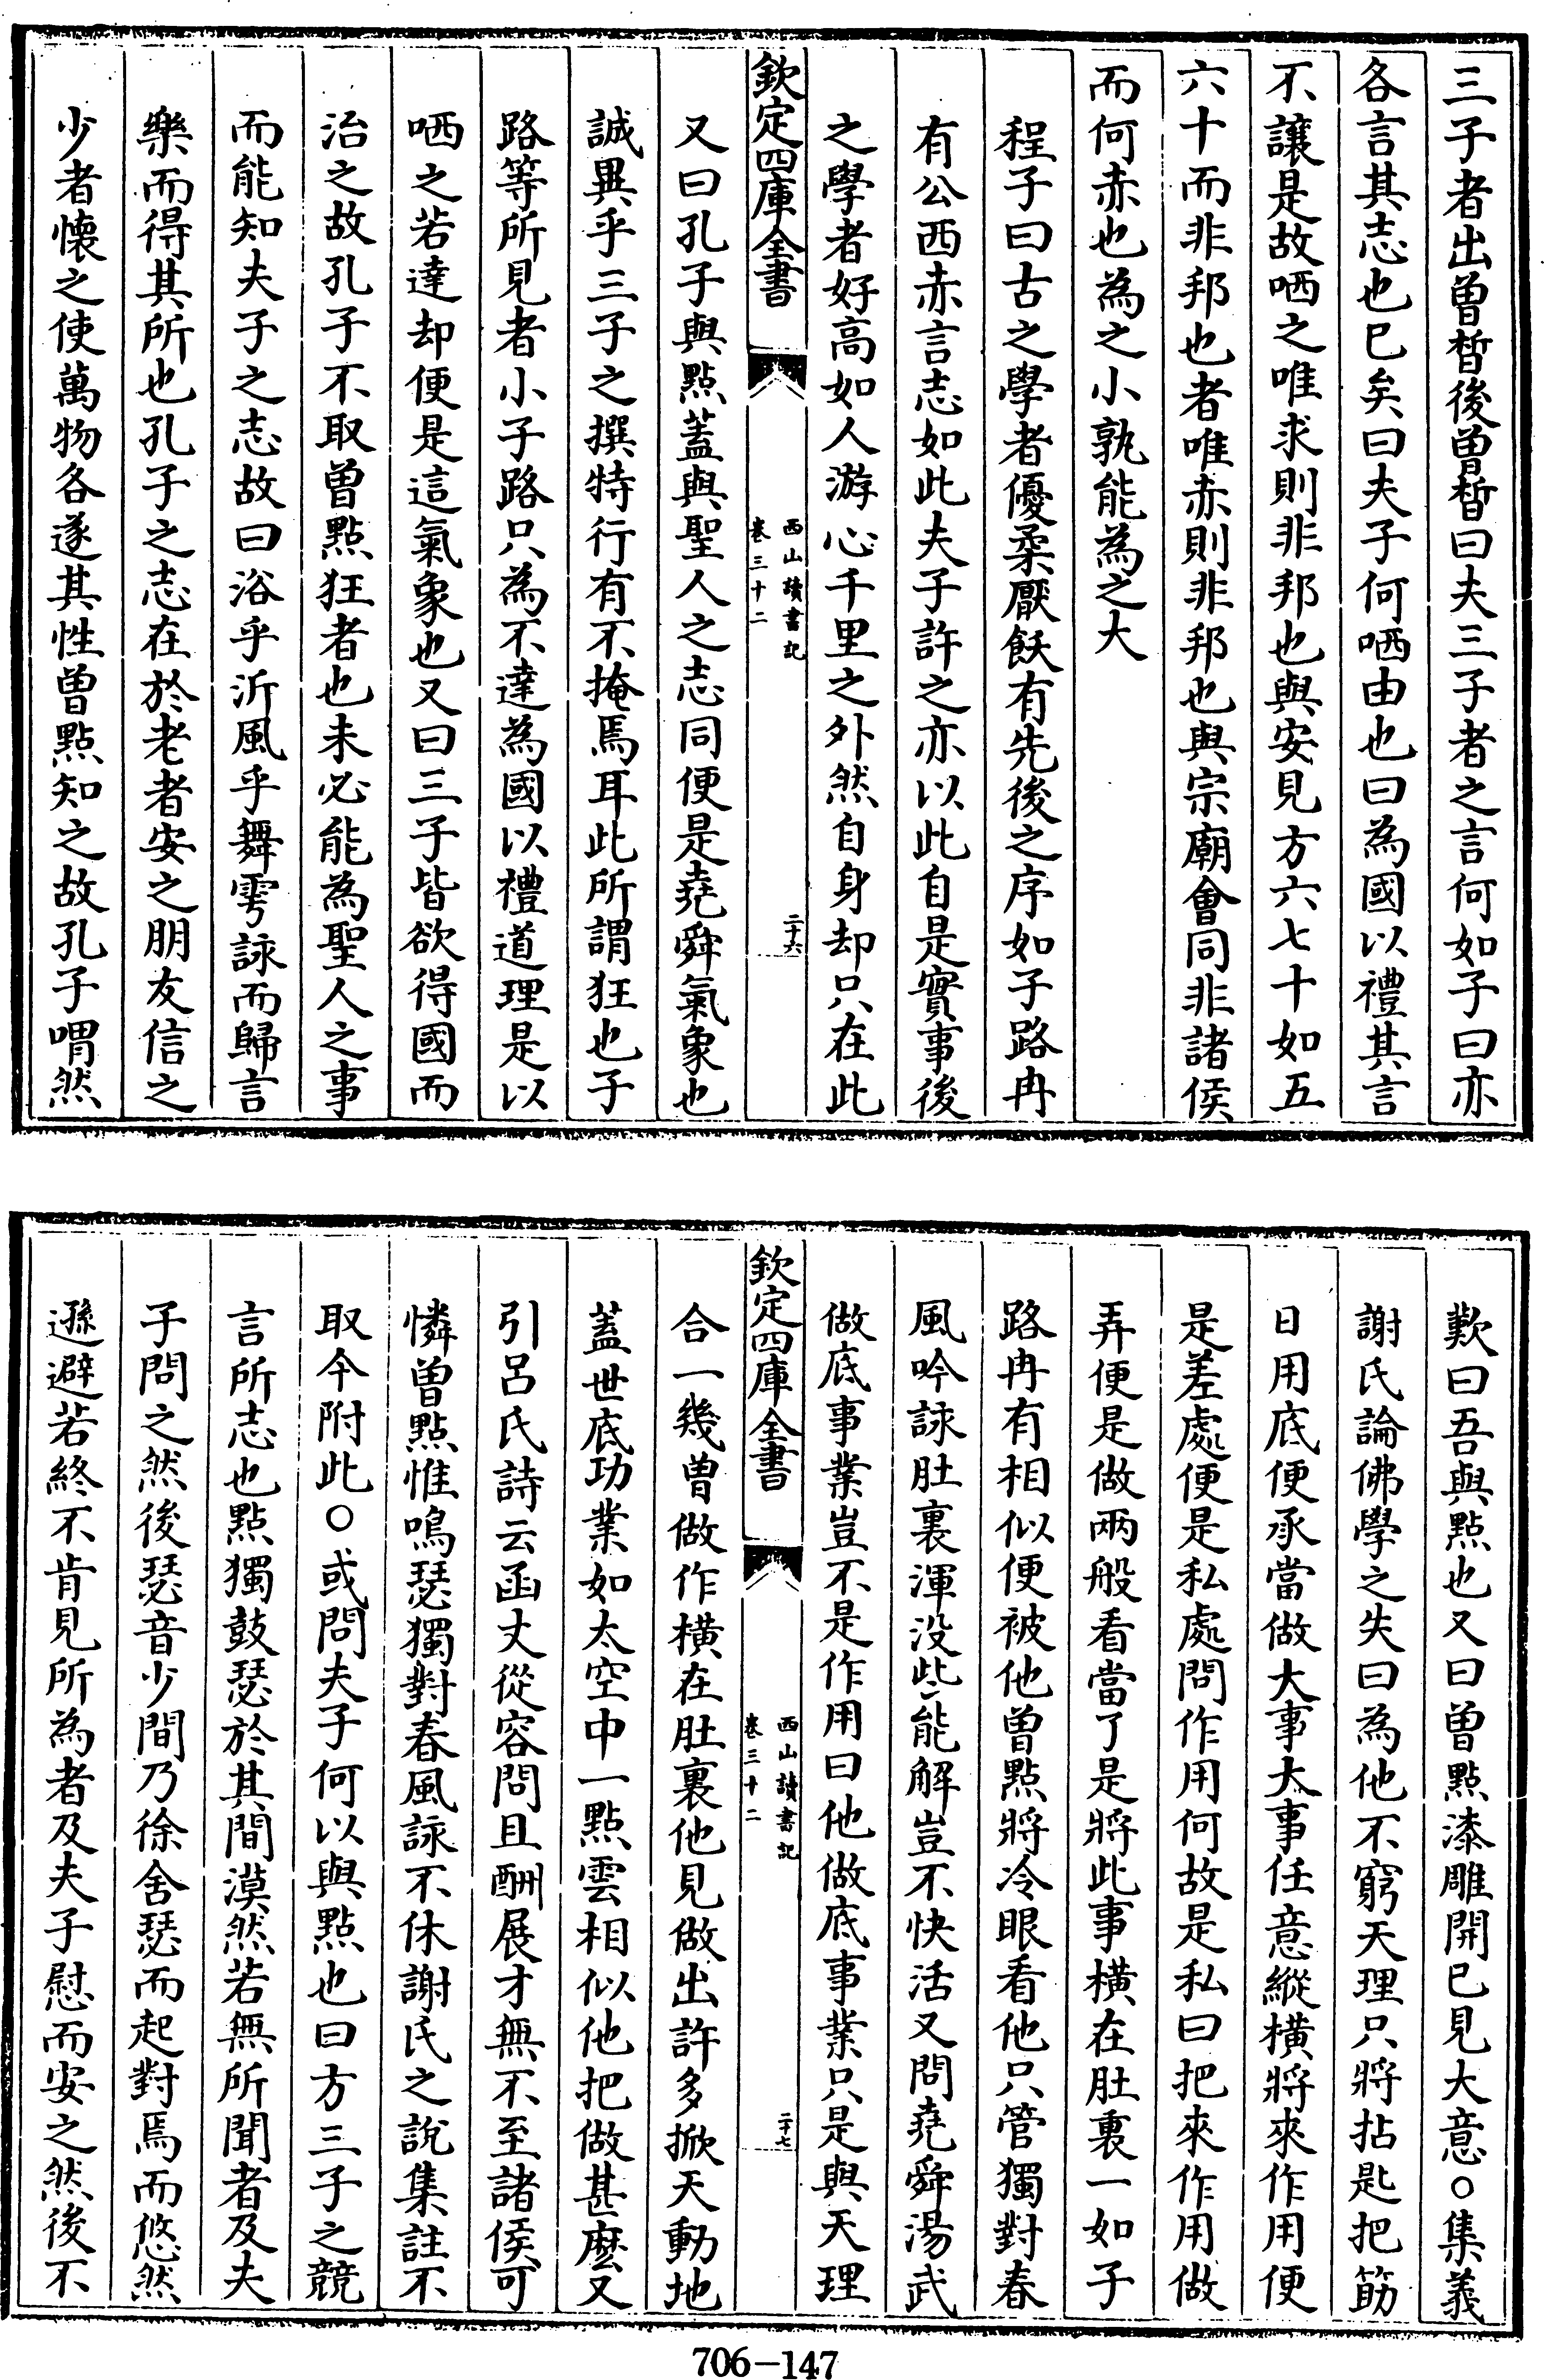 三子者出曾晳後曾晳曰夫三子者之言何如子曰亦
各言其志也已矣曰夫子何哂由也曰為國以禮其言
不讓是故哂之唯求則非邦也與安見方六七十如五
六十而非邦也者唯赤則非邦也與宗廟會同非諸侯
而何赤也為之小孰能為之大
程子曰古之學者優柔厭飫有先後之序如子路冉
有公西赤言志如此夫子許之亦以此自是實事後
之學者好高如人游心千里之外然自身却只在此
欽定四庫全書
西山讀書記
卷三十二
二十六
又曰孔子與點蓋與聖人之志同便是堯舜氣象也
誠異乎三子之撰特行有不掩焉耳此所謂狂也子
路等所見者小子路只為不達為國以禮道理是以
哂之若達却便是這氣象也又曰三子皆欲得國而
治之故孔子不取曾點狂者也未必能為聖人之事
而能知夫子之志故曰浴乎沂風乎舞雩詠而歸言
樂而得其所也孔子之志在於老者安之朋友信之
少者懷之使萬物各遂其性曾點知之故孔子喟然
歎曰吾與點也又曰曾點漆雕開已見大意○集義
謝氏論佛學之失曰為他不窮天理只將拈匙把筯
日用底便承當做大事大事任意縱橫將來作用便
是差處便是私處問作用何故是私曰把來作用做
弄便是做兩般看當了是將此事橫在肚裏一如子
路冉有相似便被他曾點將冷眼看他只管獨對春
風吟詠肚裏渾没些能解豈不快活又問堯舜湯武
做底事業豈不是作用曰他做底事業只是與天理
欽定四庫全書
西山讀書記
卷三十二
二十七
合一幾曾做作橫在肚裏他見做出許多掀天動地
蓋世底功業如太空中一點雲相似他把做甚麽又
引呂氏詩云函丈從容問且酬展才無不至諸侯可
憐曾點惟鳴瑟獨對春風詠不休謝氏之說集註不
取今附此○或問夫子何以與點也曰方三子之競
言所志也點獨鼓瑟於其間漠然若無所聞者及夫
子問之然後瑟音少間乃徐舍瑟而起對焉而悠然
遜避若終不肯見所為者及夫子慰而安之然後不
706-147